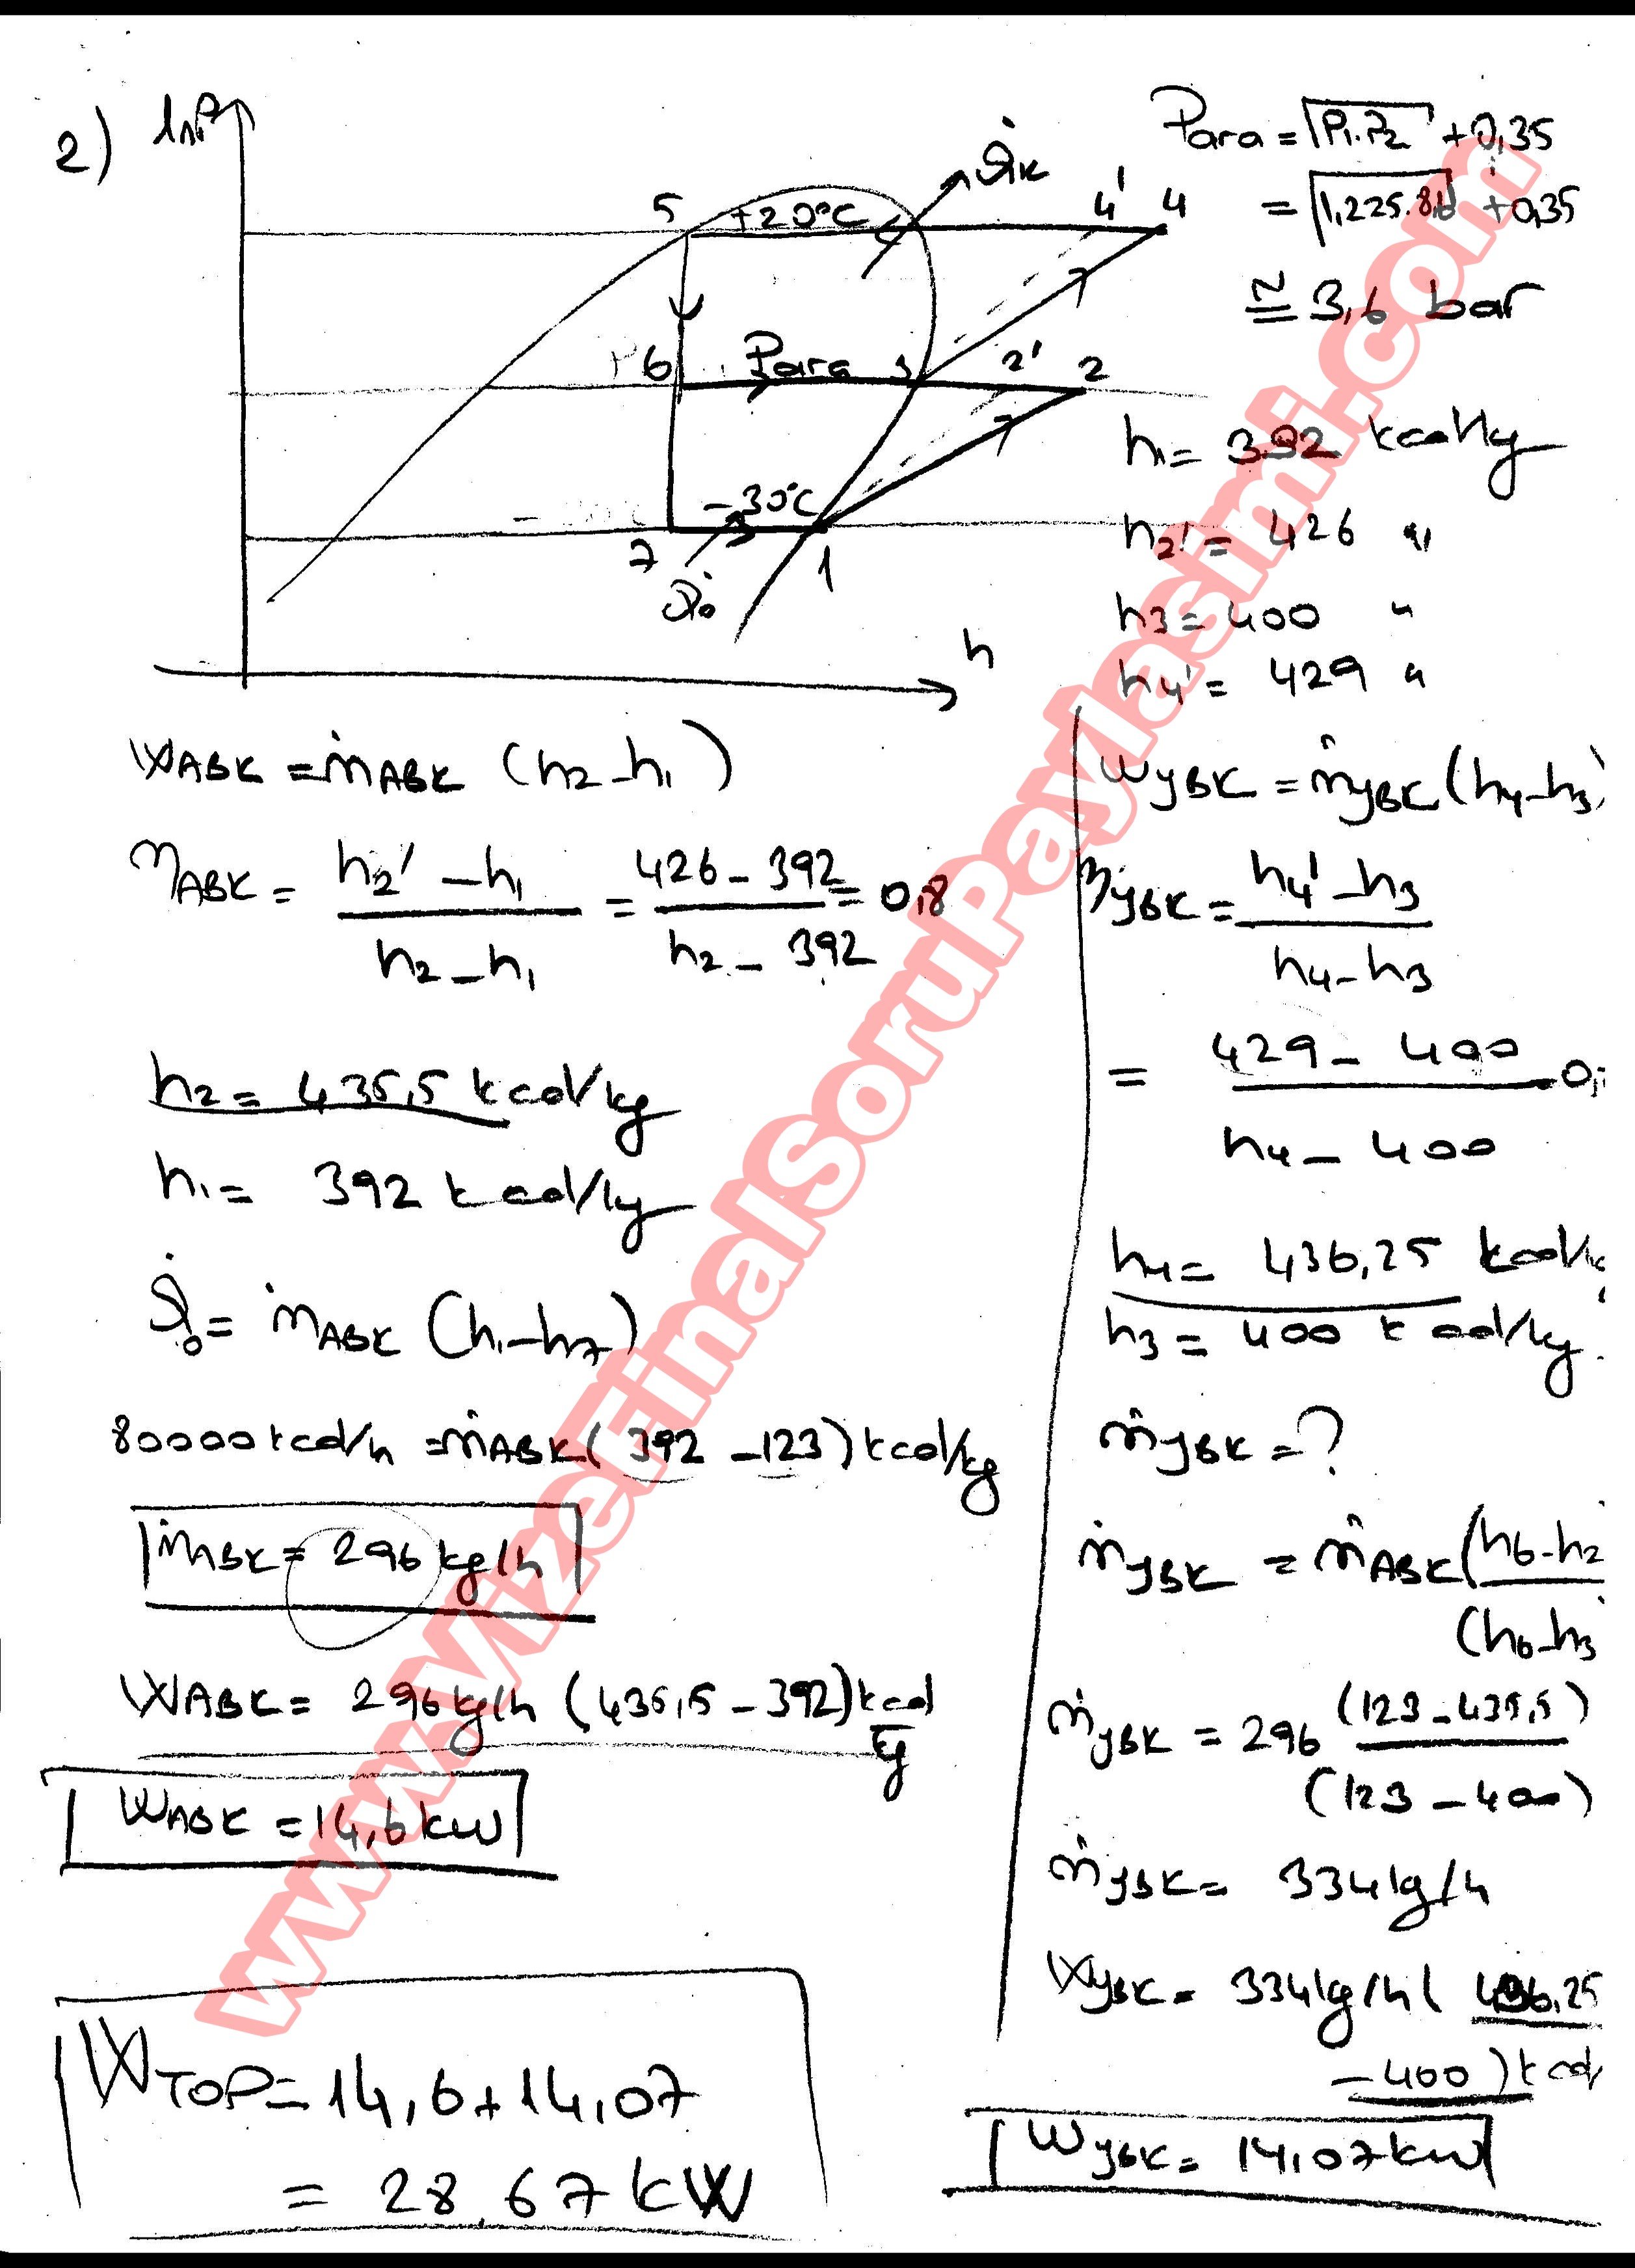 2)
lnP
Q̇K
5 +20°C 4' 4
6 Para 3 2' 2
-30°C
7 1
Q̇o
h
Para = √P1.P2 + 0,35
= √1,225.8,6 + 0,35
≅ 3,6 bar
h1 = 392 kcal/kg
h2' = 426 "
h3 = 400 "
h4' = 429 "
WABK = ṁABK (h2-h1)
ηABK = (h2' - h1)/(h2 - h1) = (426 - 392)/(h2 - 392) = 0,8
h2 = 435,5 kcal/kg
h1 = 392 kcal/kg
Q̇o = ṁABK (h1-h7)
80000 kcal/h = ṁABK (392 - 123) kcal/kg
ṁABK = 296 kg/h
WABK = 296 kg/h (435,5 - 392) kcal/kg
WABK = 14,6 kW
WTOP = 14,6 + 14,07
= 28,67 kW
WYBK = ṁYBK (h4-h3)
ηYBK = (h4' - h3)/(h4 - h3)
= (429 - 400)/(h4 - 400)
h4 = 436,25
h3 = 400 kcal/kg
ṁYBK = ?
ṁYBK = ṁABK (h6-h2)/(h6-h3)
ṁYBK = 296 (123 - 435,5)/(123 - 400)
ṁYBK = 334 kg/h
WYBK = 334 kg/h (436,25
- 400)
WYBK = 14,07 kW
www.VizeFinalSoruPaylasimi.com